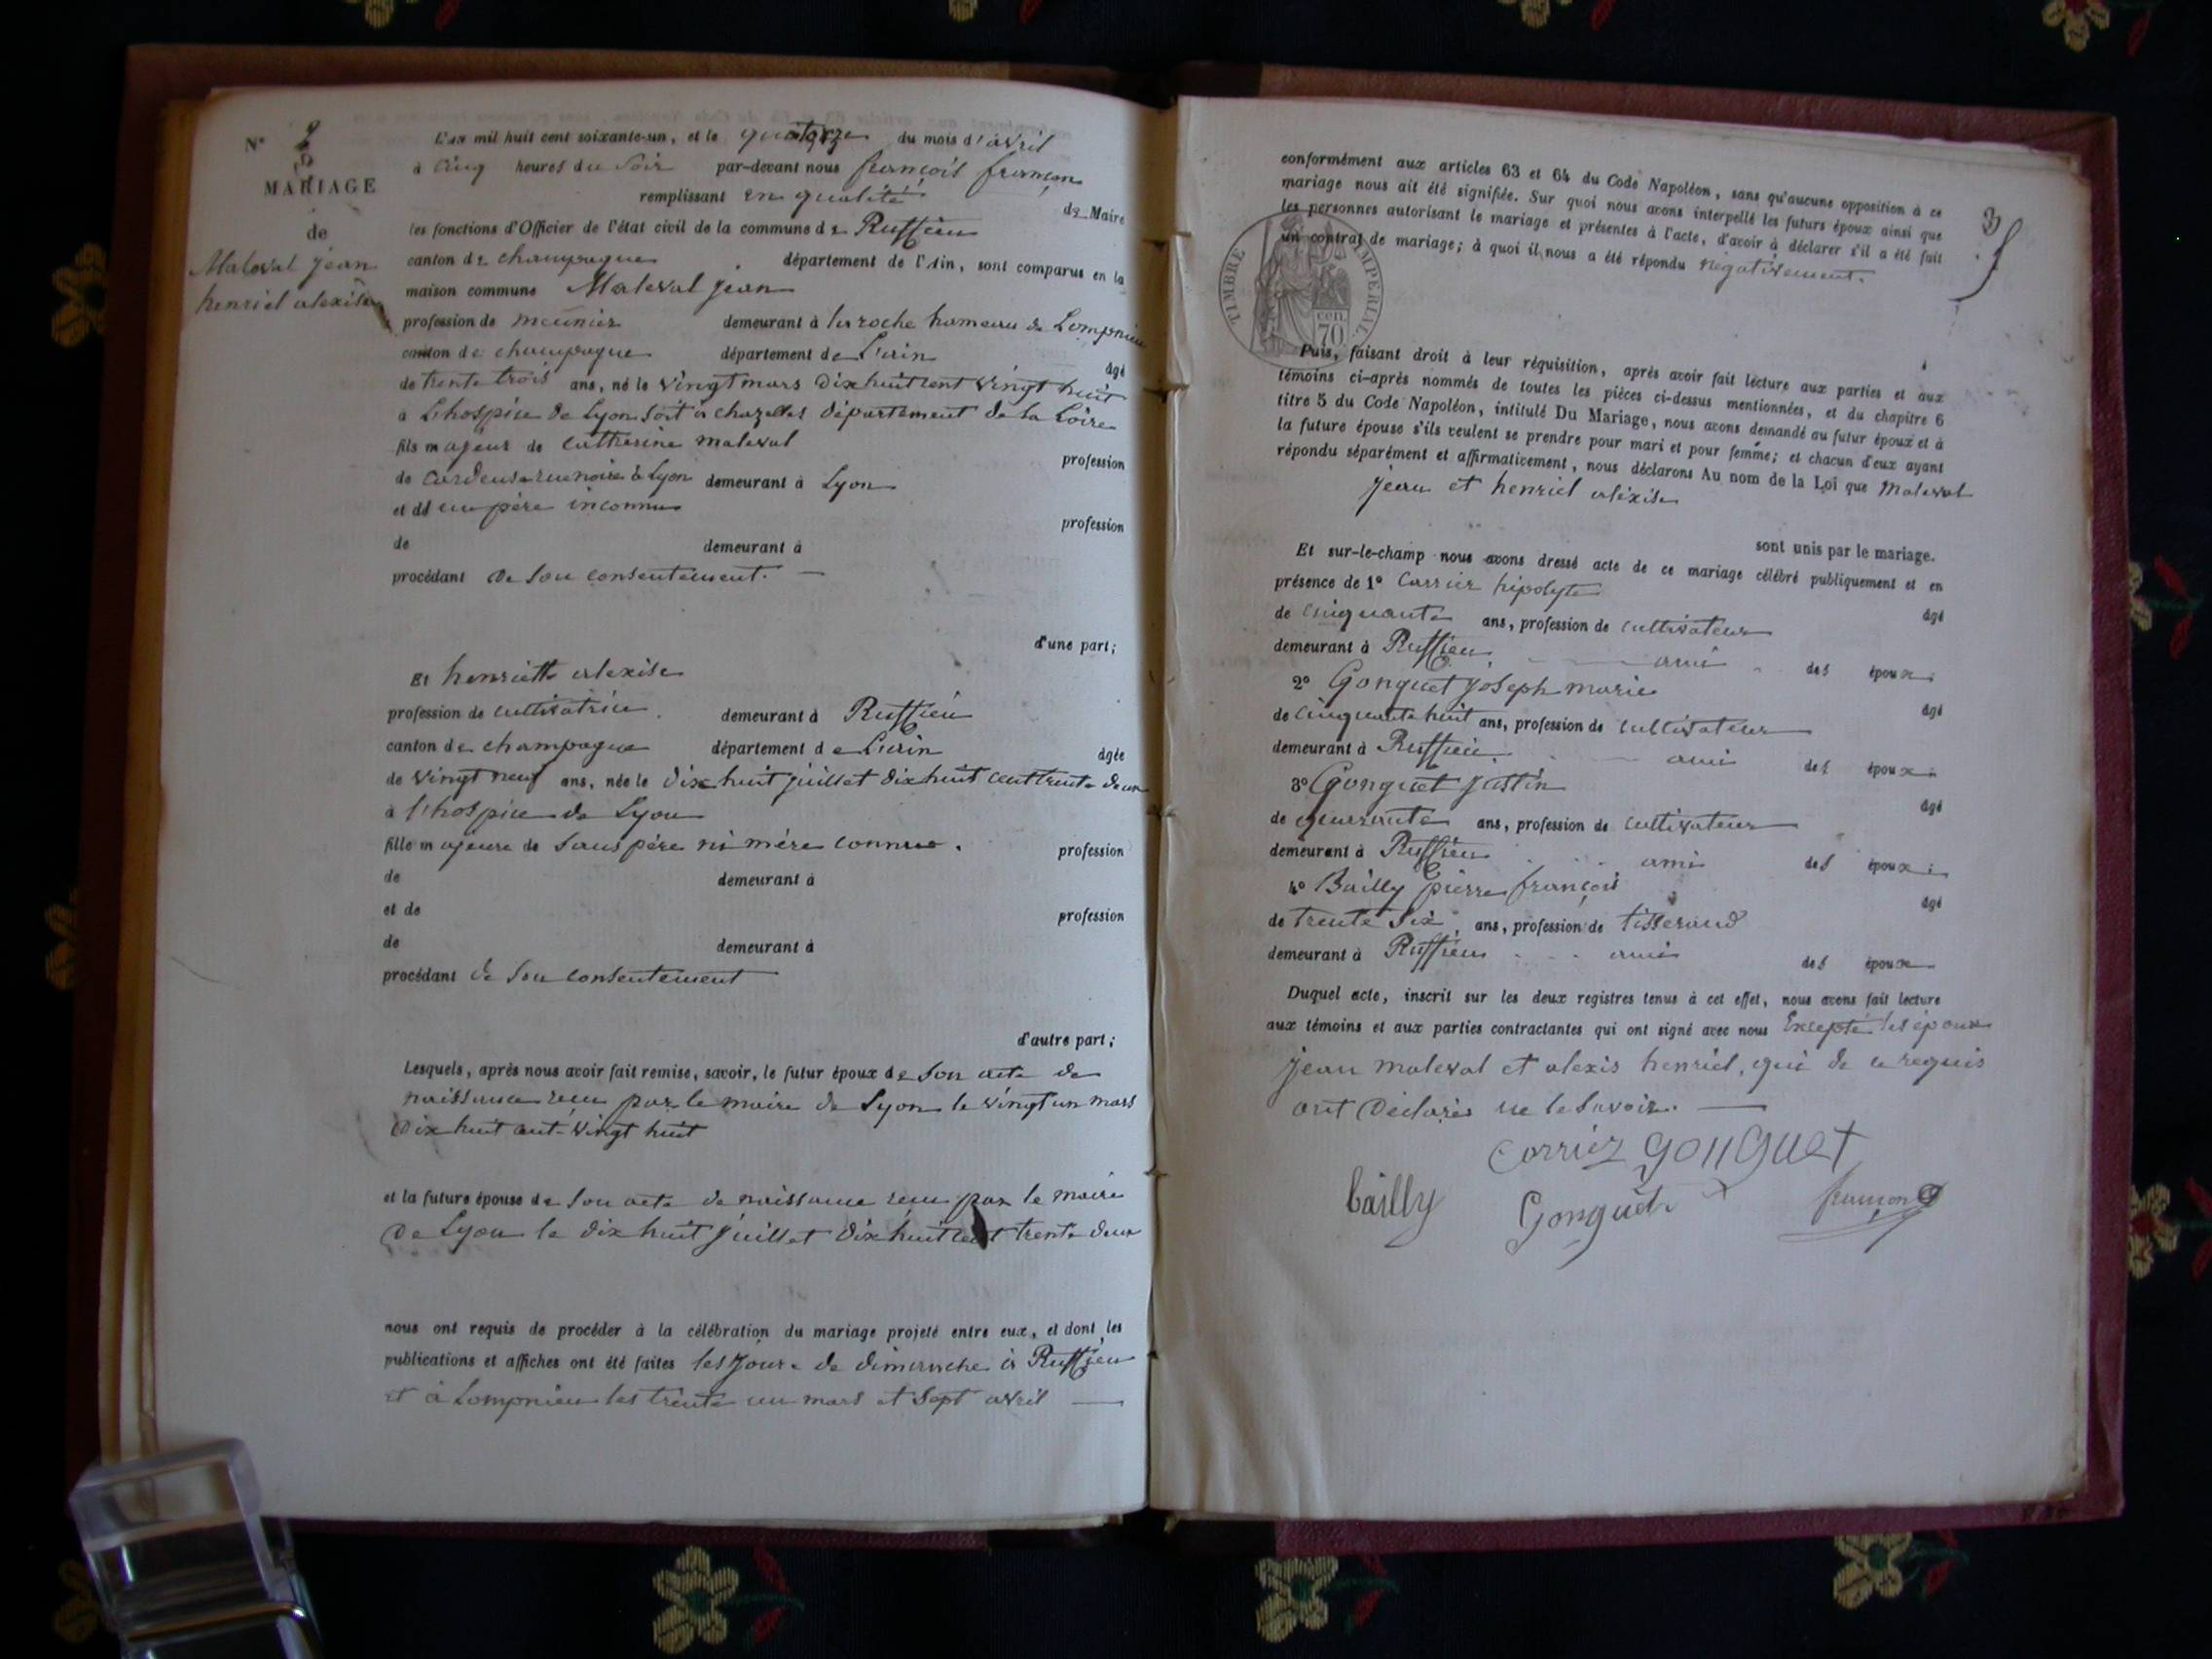 N° 2
MARIAGE
de
Maleval jean
henriet alexise
L'an mil huit cent soixante-un, et le quatorze du mois d'avril
à cinq heures du soir par-devant nous françois françon
remplissant en qualité de Maire
les fonctions d'Officier de l'état civil de la commune de Ruffieu
canton de champagne département de l'Ain, sont comparus en la
maison commune Maleval jean
profession de meunier demeurant à la roche hameau de Lompnieu
canton de champagne département de L'ain âgé
de trente trois ans, né le vingt mars dix huit cent vingt huit
à L'hospice de Lyon soit à chazelles département de la Loire
fils majeur de catherine maleval profession
de cardeuse rue noire à Lyon demeurant à Lyon
et de un père inconnu profession
de demeurant à
procédant de son consentement. —
d'une part;
Et henriette alexise
profession de cultivatrice demeurant à Ruffieu
canton de champagne département de L'ain âgée
de vingt neuf ans, née le dix huit juillet dix huit cent trente deux
à l'hospice de Lyon
fille majeure de sans père ni mère connue. profession
de demeurant à
et de profession
de demeurant à
procédant de son consentement
d'autre part;
Lesquels, après nous avoir fait remise, savoir, le futur époux de son acte de
naissance reçu par le maire de Lyon le vingt un mars
dix huit cent vingt huit
et la future épouse de son acte de naissance reçu par le maire
de Lyon le dix huit juillet dix huit cent trente deux
nous ont requis de procéder à la célébration du mariage projeté entre eux, et dont les
publications et affiches ont été faites les jours de dimanche à Ruffieu
et à Lompnieu les trente un mars et sept avril —
3
conformément aux articles 63 et 64 du Code Napoléon, sans qu'aucune opposition à ce
mariage nous ait été signifiée. Sur quoi nous avons interpellé les futurs époux ainsi que
les personnes autorisant le mariage et présentes à l'acte, d'avoir à déclarer s'il a été fait
un contrat de mariage; à quoi il nous a été répondu négativement.
TIMBRE IMPERIAL
cen.
70
Puis, faisant droit à leur réquisition, après avoir fait lecture aux parties et aux
témoins ci-après nommés de toutes les pièces ci-dessus mentionnées, et du chapitre 6
titre 5 du Code Napoléon, intitulé Du Mariage, nous avons demandé au futur époux et à
la future épouse s'ils veulent se prendre pour mari et pour femme; et chacun d'eux ayant
répondu séparément et affirmativement, nous déclarons Au nom de la Loi que Maleval
jean et henriet alexise
sont unis par le mariage.
Et sur-le-champ nous avons dressé acte de ce mariage célébré publiquement et en
présence de 1° Carrier hipolyte âgé
de cinquante ans, profession de cultivateur
demeurant à Ruffieu ami des époux;
2° Gonguet joseph marie âgé
de cinquante huit ans, profession de cultivateur
demeurant à Ruffieu ami des époux;
3° Gonguet justin âgé
de quarante ans, profession de cultivateur
demeurant à Ruffieu ami des époux;
4° Bailly pierre françois âgé
de trente six ans, profession de tisserand
demeurant à Ruffieu ami des époux
Duquel acte, inscrit sur les deux registres tenus à cet effet, nous avons fait lecture
aux témoins et aux parties contractantes qui ont signé avec nous Excepté les époux
jean maleval et alexis henriet, qui de ce requis
ont déclarés ne le savoir. —
Corriez gonguet
bailly Gonguet françon